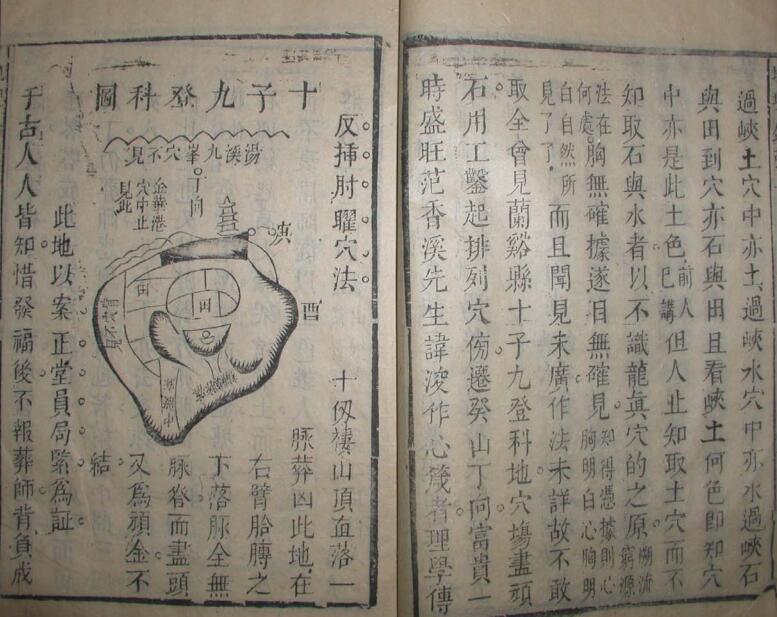 過峽土穴中亦土過峽水穴中亦水過峽石
與田到穴亦石與田且看峽土何色即知穴
中亦是此土色前人已講但人止知取土穴而不
知取石與水者以不識龍真穴的之原溯流窮源
法在胸無確據遂目無確見知得憑據則心胸明白心胸明
何處白自然所見了了而且聞見未廣作法未詳故不敢
取全曾見蘭谿縣十子九登科地穴場盡頑
石用工鑿起排列穴傍遷癸山丁向富貴一
時盛旺范香溪先生諱浚作心箴者理學傳
反挿肘曜穴法
十子九登科圖
湯溪九峯穴不見
丁向
金華港穴中止見此
酉
田
田
十伋褸山頂直落一
脉葬凶此地在
右臂胎膊之
下落脉全無
脉脊而盡頭
又爲頑金不
結
此地以案正堂員局緊爲証
于古人人皆知惜發福後不報葬師背負成